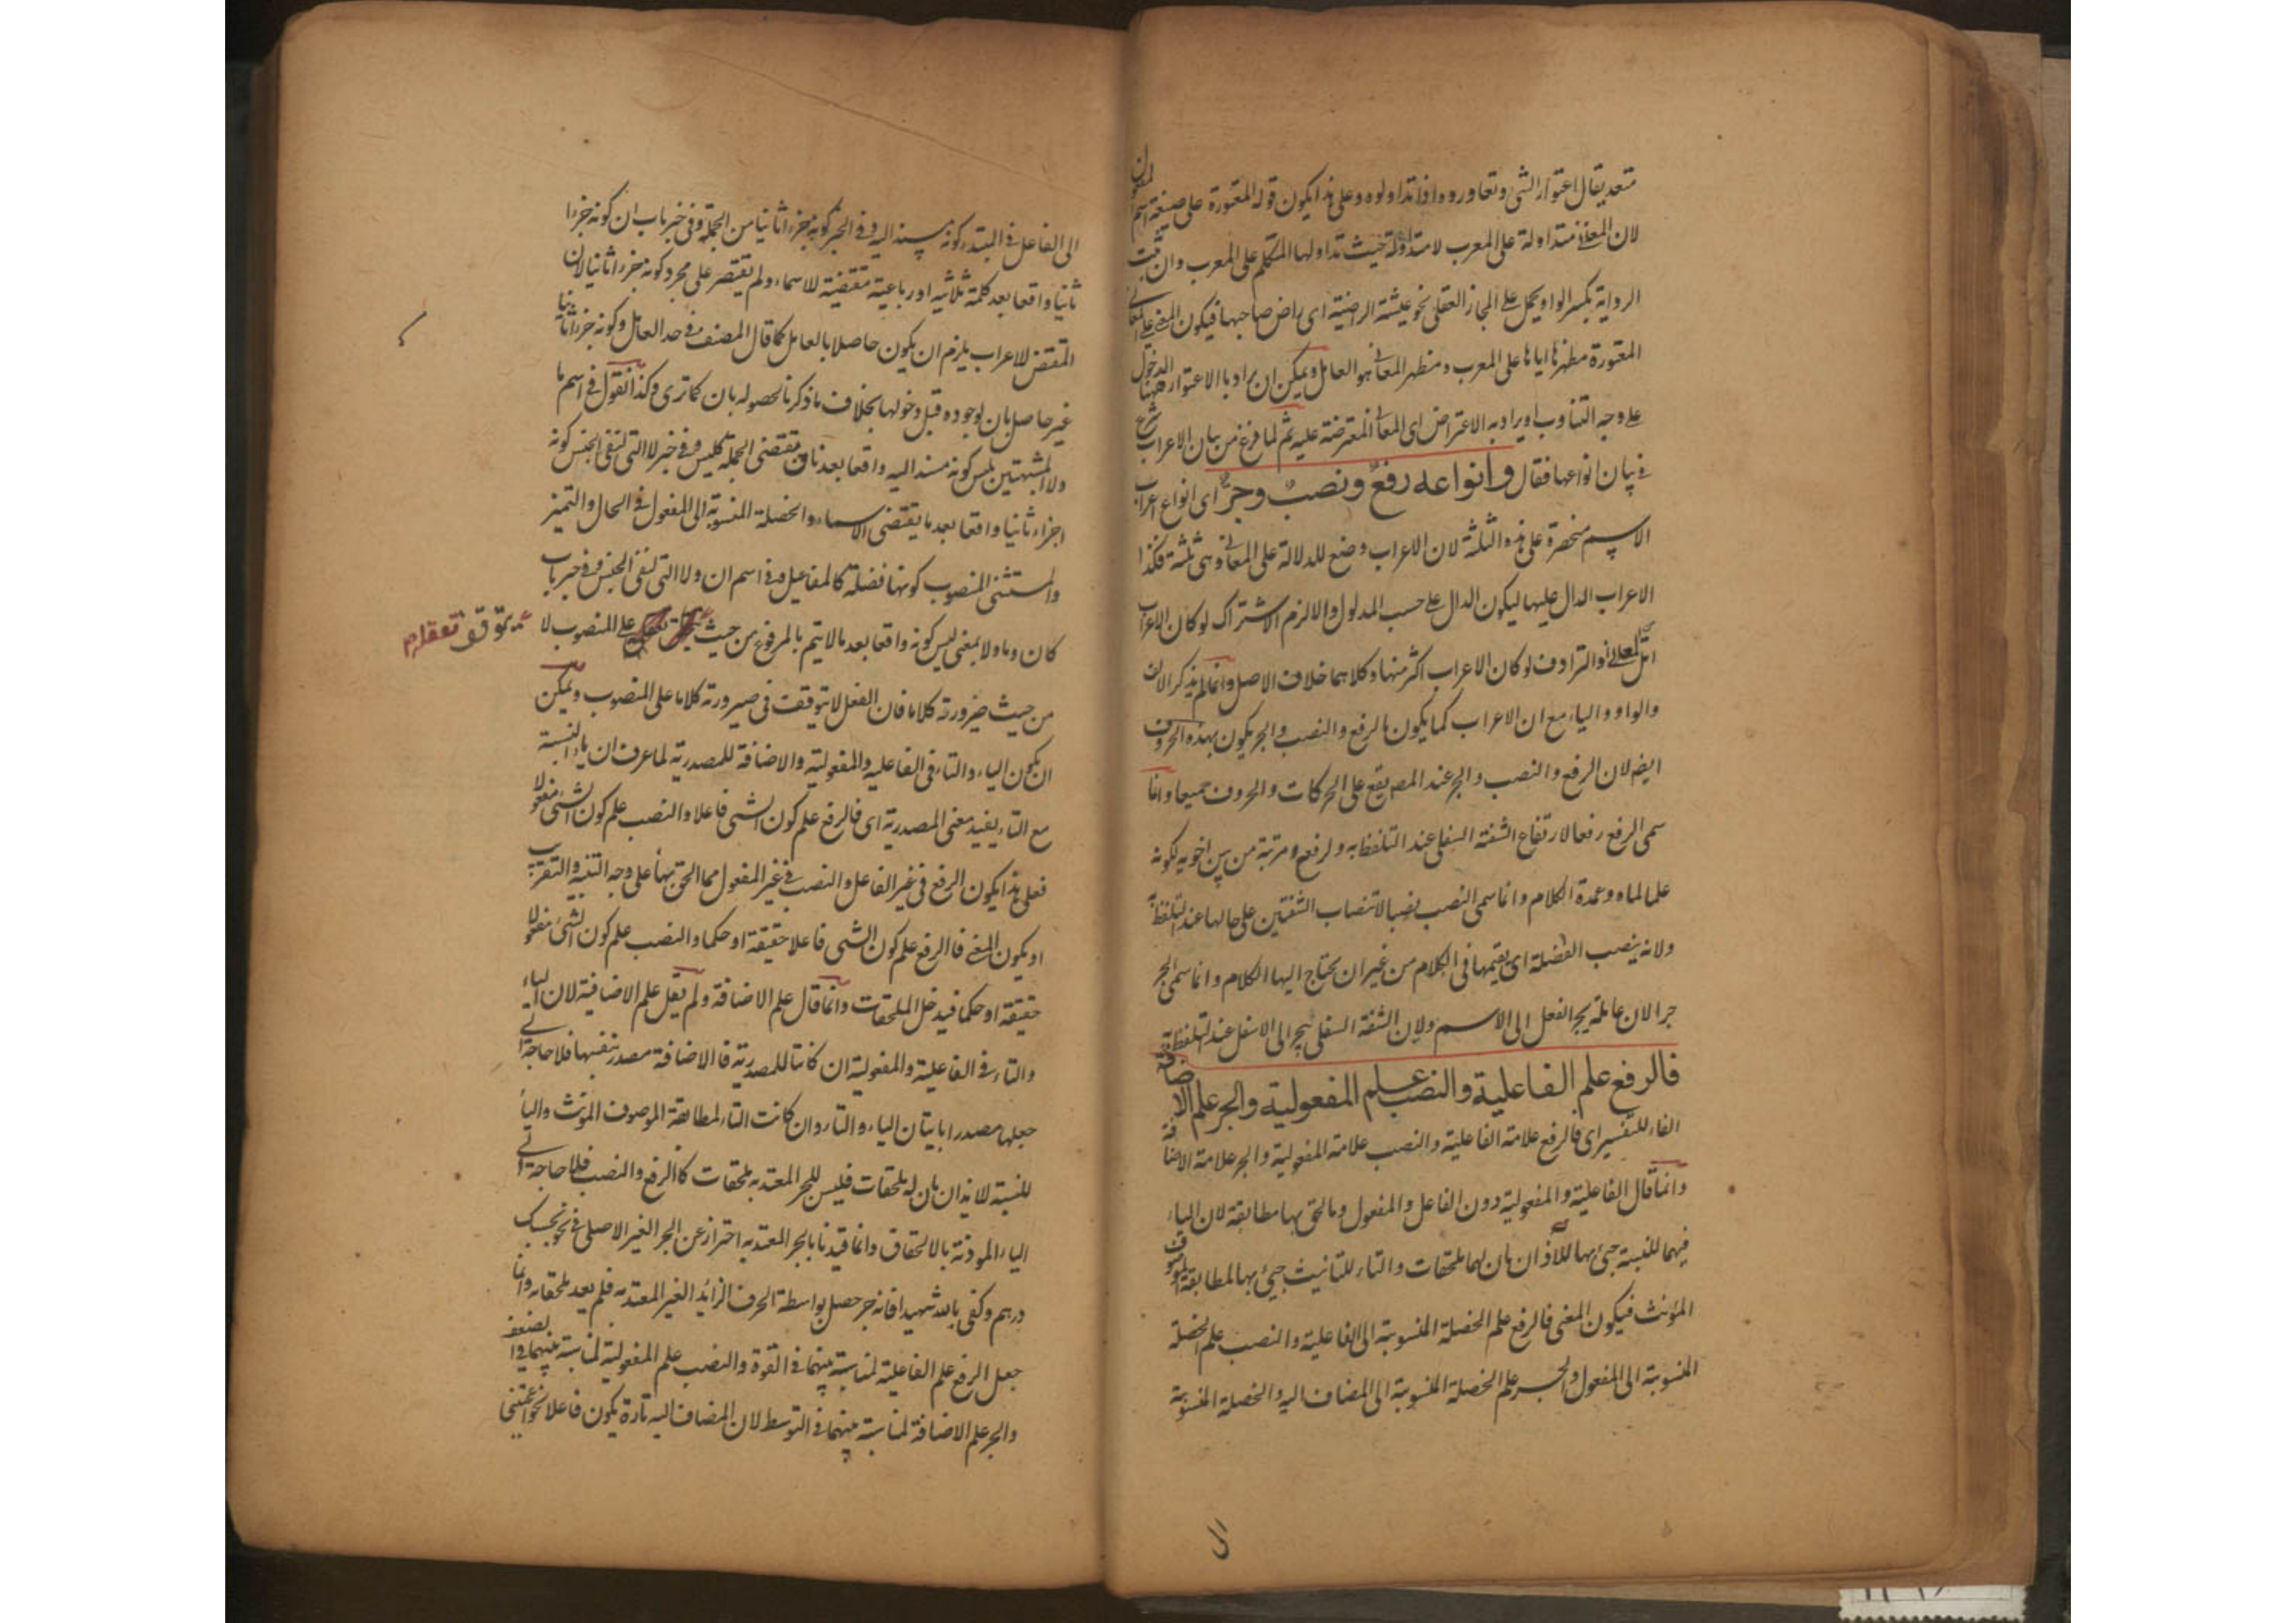 متعد يقال اعتوار الشئ وتعاوروه اذا تداولوه وعلى هذا يكون قوله المعتورة على صيغة اسم المفعول
لان المعانى متداولة على المعرب لا متداولة حيث تداولها المتكلم على المعرب وان ثبت
الرواية بكسر الواو يحمل على المجاز العقلى نحو عيشة الراضية اى راض صاحبها فيكون المعنى على المعانى
المعتورة مظهرها اياها على المعرب ومظهر المعانى هو العامل ويمكن ان يراد بالاعتوار ههنا الدخول
على وجه التناوب او يراد به الاعتراض اى المعانى المعترضة عليه ثم لما فرغ من بيان الاعراب شرع
فى بيان انواعها فقال وانواعه رفع ونصب وجر اى انواع اعراب
الاسم منحصرة على هذه الثلثة لان الاعراب وضع للدلالة على المعانى وهى ثلثة فكذا
الاعراب الدال عليها ليكون الدال على حسب المدلول والا لزم الاشتراك لو كان الاعراب
اقل من المعانى والترادف لو كان الاعراب اكثر منها وكلاهما خلاف الاصل وانما لم يذكر الالف
والواو والياء مع ان الاعراب كما يكون بالرفع والنصب والجر يكون بهذه الحروف
ايضا لان الرفع والنصب والجر عند المص يقع على الحركات والحروف جميعا وانما
سمى الرفع رفعا لارتفاع الشفة السفلى عند التلفظ به ولرفع مرتبة من بين اخويه لكونه
علما لما هو عمدة الكلام وانما سمى النصب نصبا لانتصاب الشفتين على حالها عند التلفظ به
ولانه ينصب الفضلة اى يقيمها فى الكلام من غير ان يحتاج اليها الكلام وانما سمى الجر
جرا لان عامله يجر الفعل الى الاسم ولان الشفة السفلى ينجر الى الاسفل عند التلفظ به
فالرفع علم الفاعلية والنصب علم المفعولية والجر علم الاضافة
الفاء للتفسير اى فالرفع علامة الفاعلية والنصب علامة المفعولية والجر علامة الاضافة
وانما قال الفاعلية والمفعولية دون الفاعل والمفعول وما لحق بها مطابقة لان الياء
فيهما للنسبة جئ بها للايذان بان لهما ملحقات والتاء للتانيث جئ بها لمطابقة الموصوف
المؤنث فيكون المعنى فالرفع علم الخصلة المنسوبة الى الفاعلية والنصب علم الخصلة
المنسوبة الى المفعول والجر علم الخصلة المنسوبة الى المضاف اليه والخصلة المنسوبة
الى
الى الفاعل فى المبتدء كونه مسند اليه وفى الخبر كونه جزء اثانيا من الجملة وفى خبر باب ان كونه جزءا
ثانيا واقعا بعد كلمة ثلاثية او رباعية مقتضية للاسماء ولم يقتصر على مجرد كونه جزء اثانيا لان
المقتضى للاعراب يلزم ان يكون حاصلا بالعامل كما قال المصنف فى حد العامل وكونه جزء اثانيا
غير حاصل بان لوجوده قبل دخولها بخلاف ما ذكرنا لحصوله بان كما ترى وكذا نقول فى اسم ما
ولا المشبهتين بليس كونه مسند اليه واقعا بعد ناف مقتضى الجملة كليس وفى خبر لا التى لنفى الجنس كونه
اجزاء ثانيا واقعا بعد ما يقتضى الاسماء والخصلة المنسوبة الى المفعول فى الحال والتميز
والمستثنى المنصوب كونها فضلة كالمفاعيل وفى اسم ان ولا التى لنفى الجنس وفى خبر باب
كان وما ولا بمعنى ليس كونه واقعا بعد ما لا يتم بالمرفوع من حيث على المنصوب لا
يتوقف تعقله
من حيث ضرورته كلاما فان الفعل لا يتوقف فى صيرورته كلاما على المنصوب ويمكن
ان يكون الياء والتاء فى الفاعلية والمفعولية والاضافة للمصدرية لما عرف ان ياء النسبة
مع التاء يفيد معنى المصدرية اى فالرفع علم كون الشئ فاعلا والنصب علم كون الشئ مفعولا
فعلى هذا يكون الرفع فى غير الفاعل والنصب فى غير المفعول مما الحق بهما على وجه التشبيه والتقريب
او يكون المعنى فالرفع علم كون الشئ فاعلا حقيقة او حكما والنصب علم كون الشئ مفعولا
حقيقة او حكما فيدخل الملحقات وانما قال علم الاضافة ولم يقل علم الاضافية لان الياء
والتاء فى الفاعلية والمفعولية ان كانتا للمصدرية فالاضافة مصدر بنفسها فلا حاجة الى
جعلها مصدرا باتيان الياء والتاء وان كانت التاء لمطابقة الموصوف المؤنث والياء
للنسبة للايذان بان له ملحقات فليس للجر المعتد به ملحقات كالرفع والنصب فلا حاجة الى
الياء الموذنة بالالحقاق وانما قيدنا بالجر المعتد به احترازا عن الجر الغير الاصلى فى نحو بحسبك
درهم وكفى بالله شهيدا فانه جر حصل بواسطة الحرف الزائد الغير المعتد به فلم يعد ملحقا به وانما
جعل الرفع علم الفاعلية لمناسبة بينهما فى القوة والنصب علم المفعولية لمناسبة بينهما فى الضعف
والجر علم الاضافة لمناسبة بينهما فى التوسط لان المضاف اليه تارة يكون فاعلا نحو اعجبنى